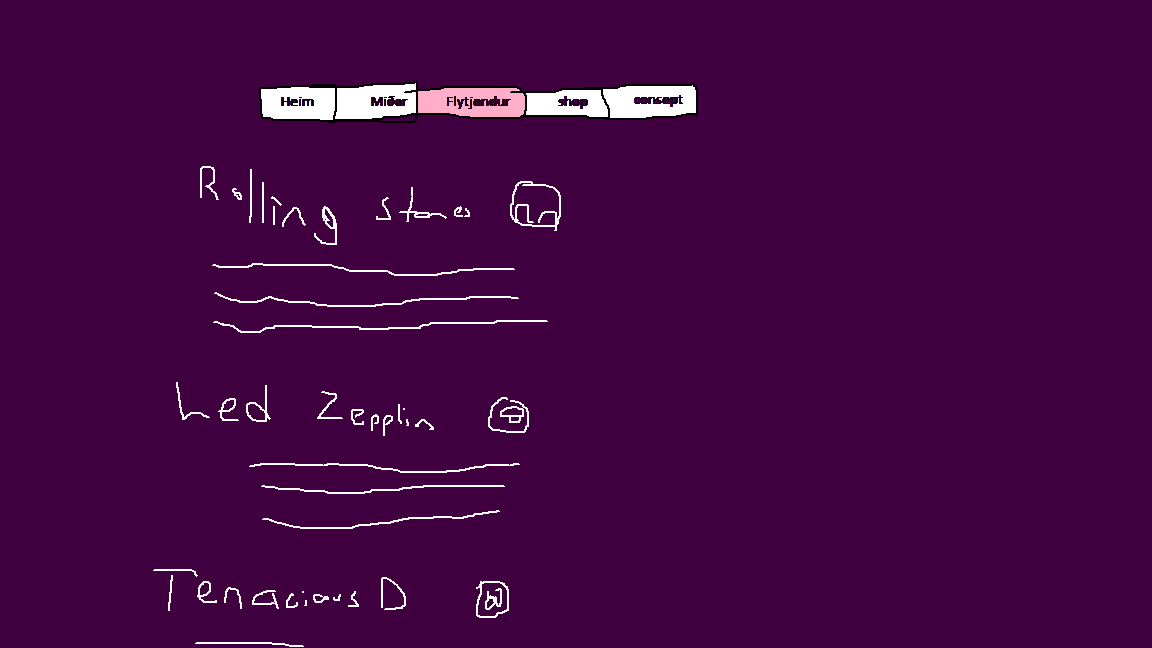 Heim Miðar Flytjendur shop consept
Rolling stones
Led Zepplin
Tenacious D